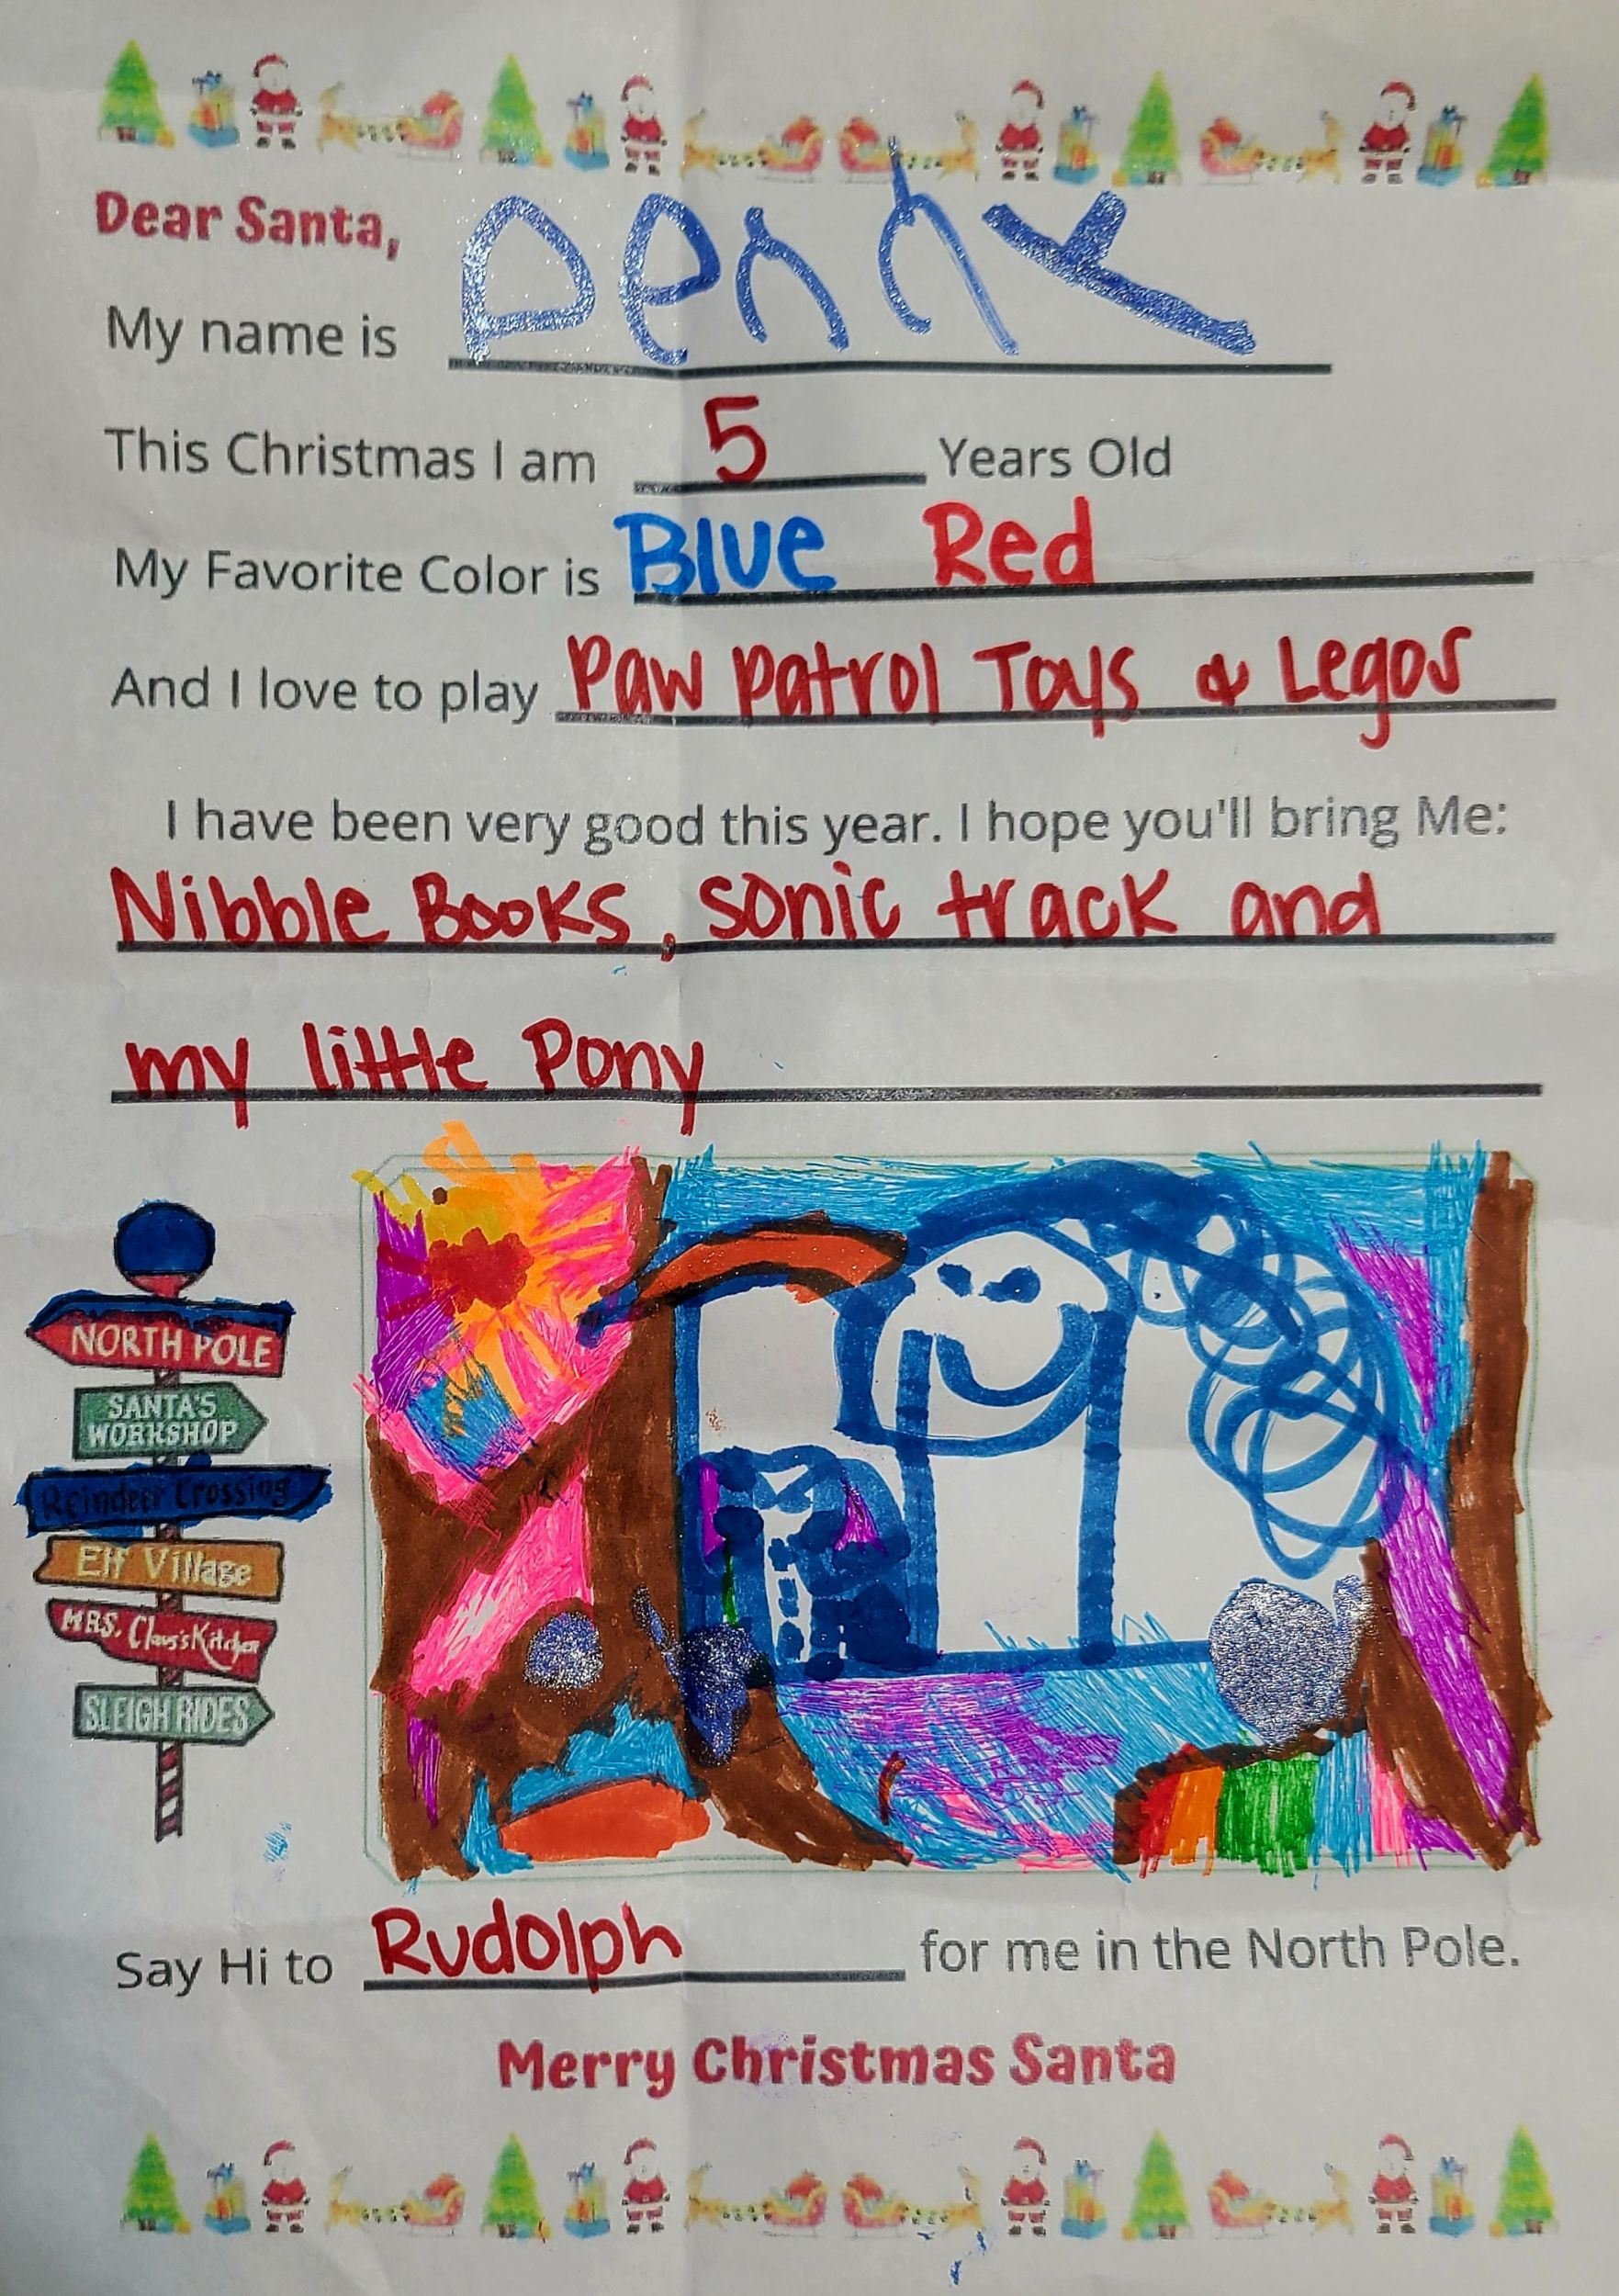 Dear Santa,
My name is
This Christmas I am 5 Years Old
My Favorite Color is Blue Red
And I love to play Paw Patrol Toys & Legos
I have been very good this year. I hope you'll bring Me:
Nibble Books, sonic track and
my little Pony
NORTH POLE
SANTA'S
WORKSHOP
Reindeer Crossing
Elf Village
MRS. Claus's Kitchen
SLEIGH RIDES
Say Hi to Rudolph for me in the North Pole.
Merry Christmas Santa